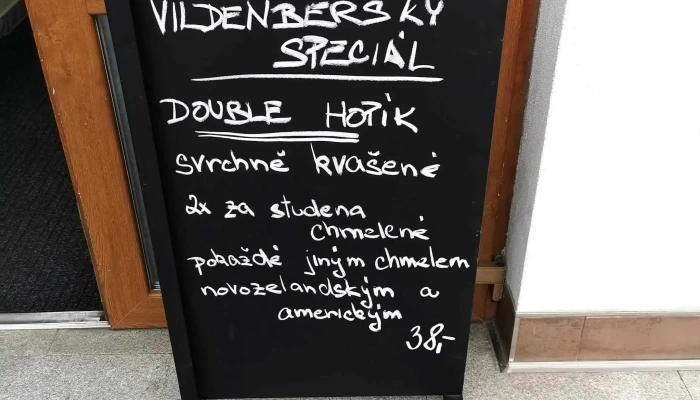 VILDENBERSKÝ
SPECIÁL
DOUBLE HOPÍK
svrchně kvašené
2x za studena
chmelené
pokaždé jiným chmelem
novozelandským a
americkým
38,-